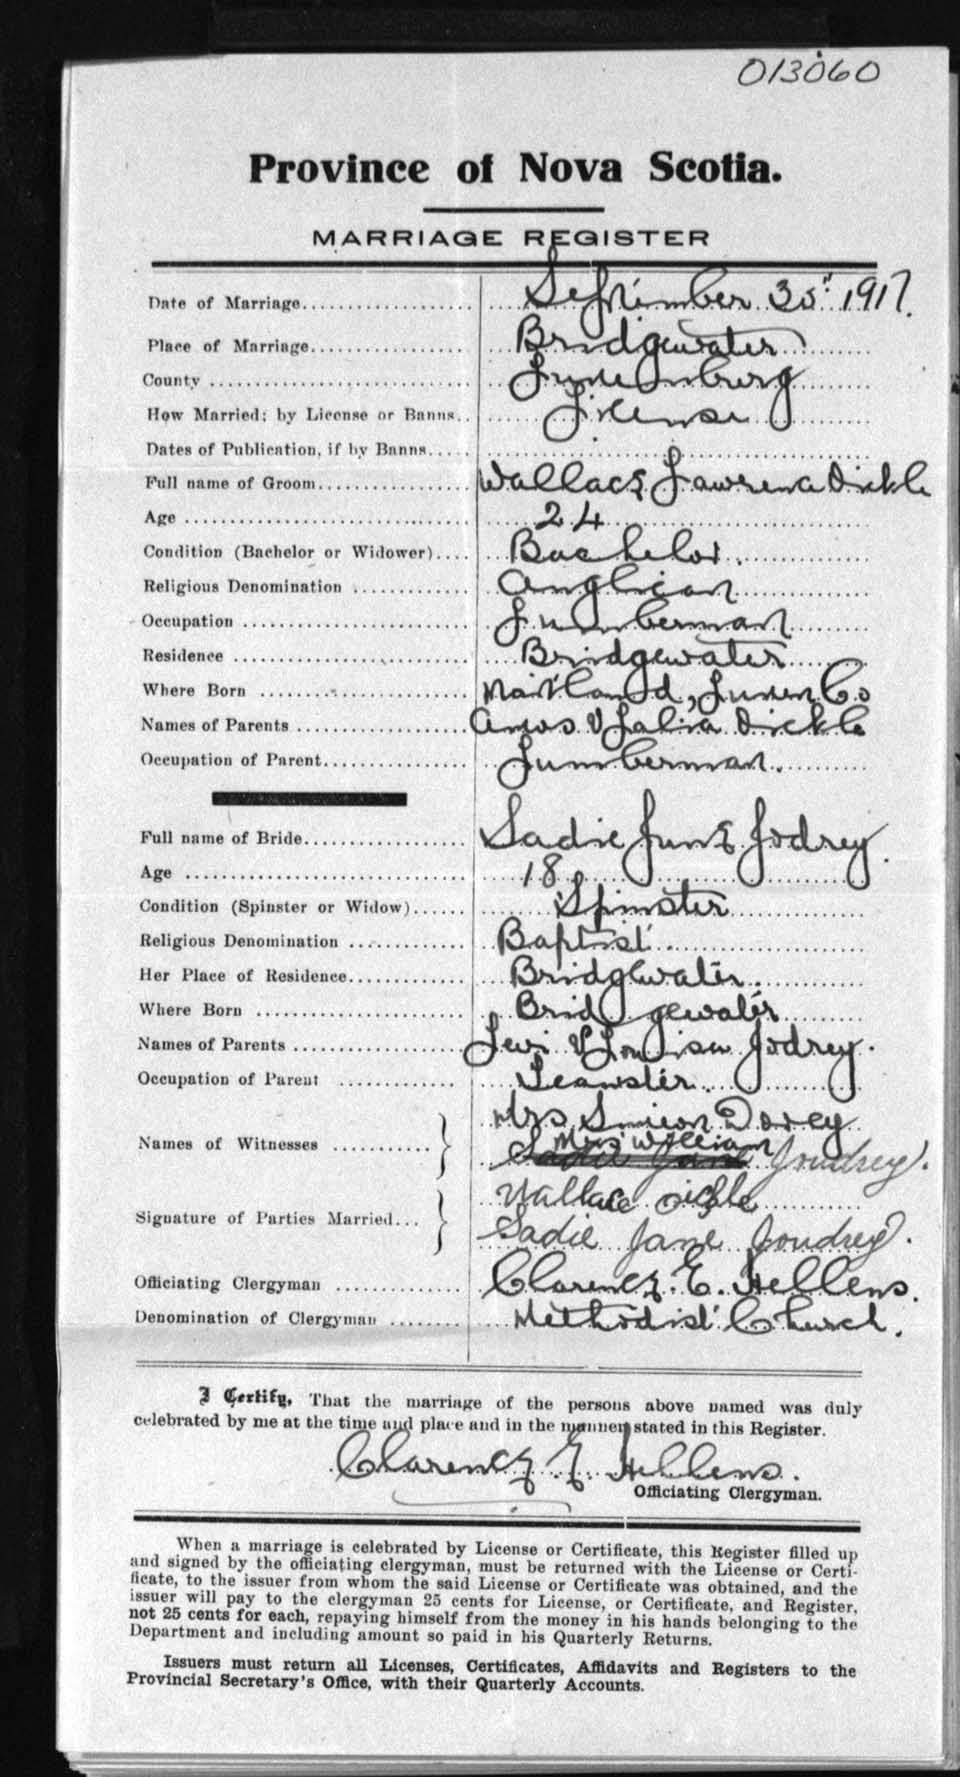 013060
Province of Nova Scotia.
MARRIAGE REGISTER
Date of Marriage September 30" 1917.
Place of Marriage Bridgewater
County Lunenburg
How Married; by License or Banns License
Dates of Publication, if by Banns
Full name of Groom Wallace Lawrence Dickle
Age 24
Condition (Bachelor or Widower) Bachelor
Religious Denomination Anglican
Occupation Lumberman
Residence Bridgewater
Where Born Maitland, Lunen Co
Names of Parents Amos & Dickle
Occupation of Parent Lumberman.
Full name of Bride Sadie Jane Jodrey.
Age 18
Condition (Spinster or Widow) Spinster
Religious Denomination Baptist
Her Place of Residence Bridgewater.
Where Born Bridgewater
Names of Parents Levi & Louisa Jodrey.
Occupation of Parent Teamster.
Names of Witnesses } Mrs Simeon Dorey
Mrs William
Sadie Jane Joudrey.
Signature of Parties Married... } Wallace Dickle
Sadie Jane Joudrey.
Officiating Clergyman Clarence E. Hellens.
Denomination of Clergyman Methodist Church.
I Certify, That the marriage of the persons above named was duly
celebrated by me at the time and place and in the manner stated in this Register.
Clarence E Hellens.
Officiating Clergyman.
When a marriage is celebrated by License or Certificate, this Register filled up
and signed by the officiating clergyman, must be returned with the License or Certi-
ficate, to the issuer from whom the said License or Certificate was obtained, and the
issuer will pay to the clergyman 25 cents for License, or Certificate, and Register,
not 25 cents for each, repaying himself from the money in his hands belonging to the
Department and including amount so paid in his Quarterly Returns.
Issuers must return all Licenses, Certificates, Affidavits and Registers to the
Provincial Secretary's Office, with their Quarterly Accounts.